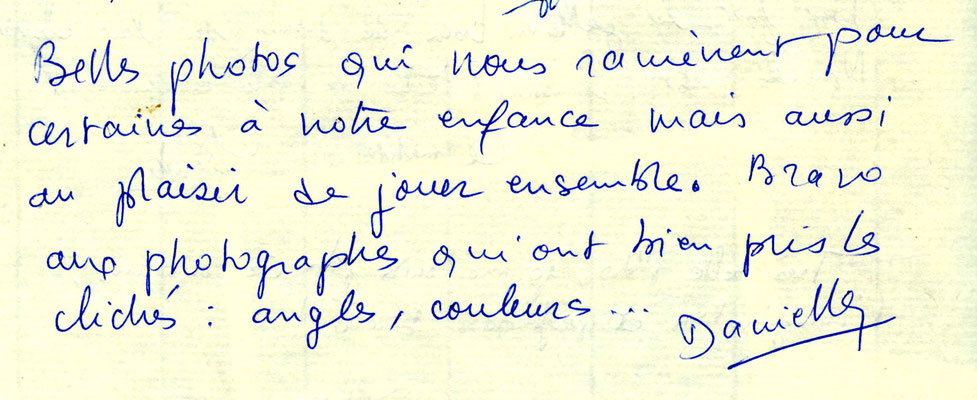 Belles photos qui nous ramènent pour
certaines à notre enfance mais aussi
au plaisir de jouer ensemble. Bravo
aux photographes qui ont bien pris les
clichés : angles, couleurs...
Danielle